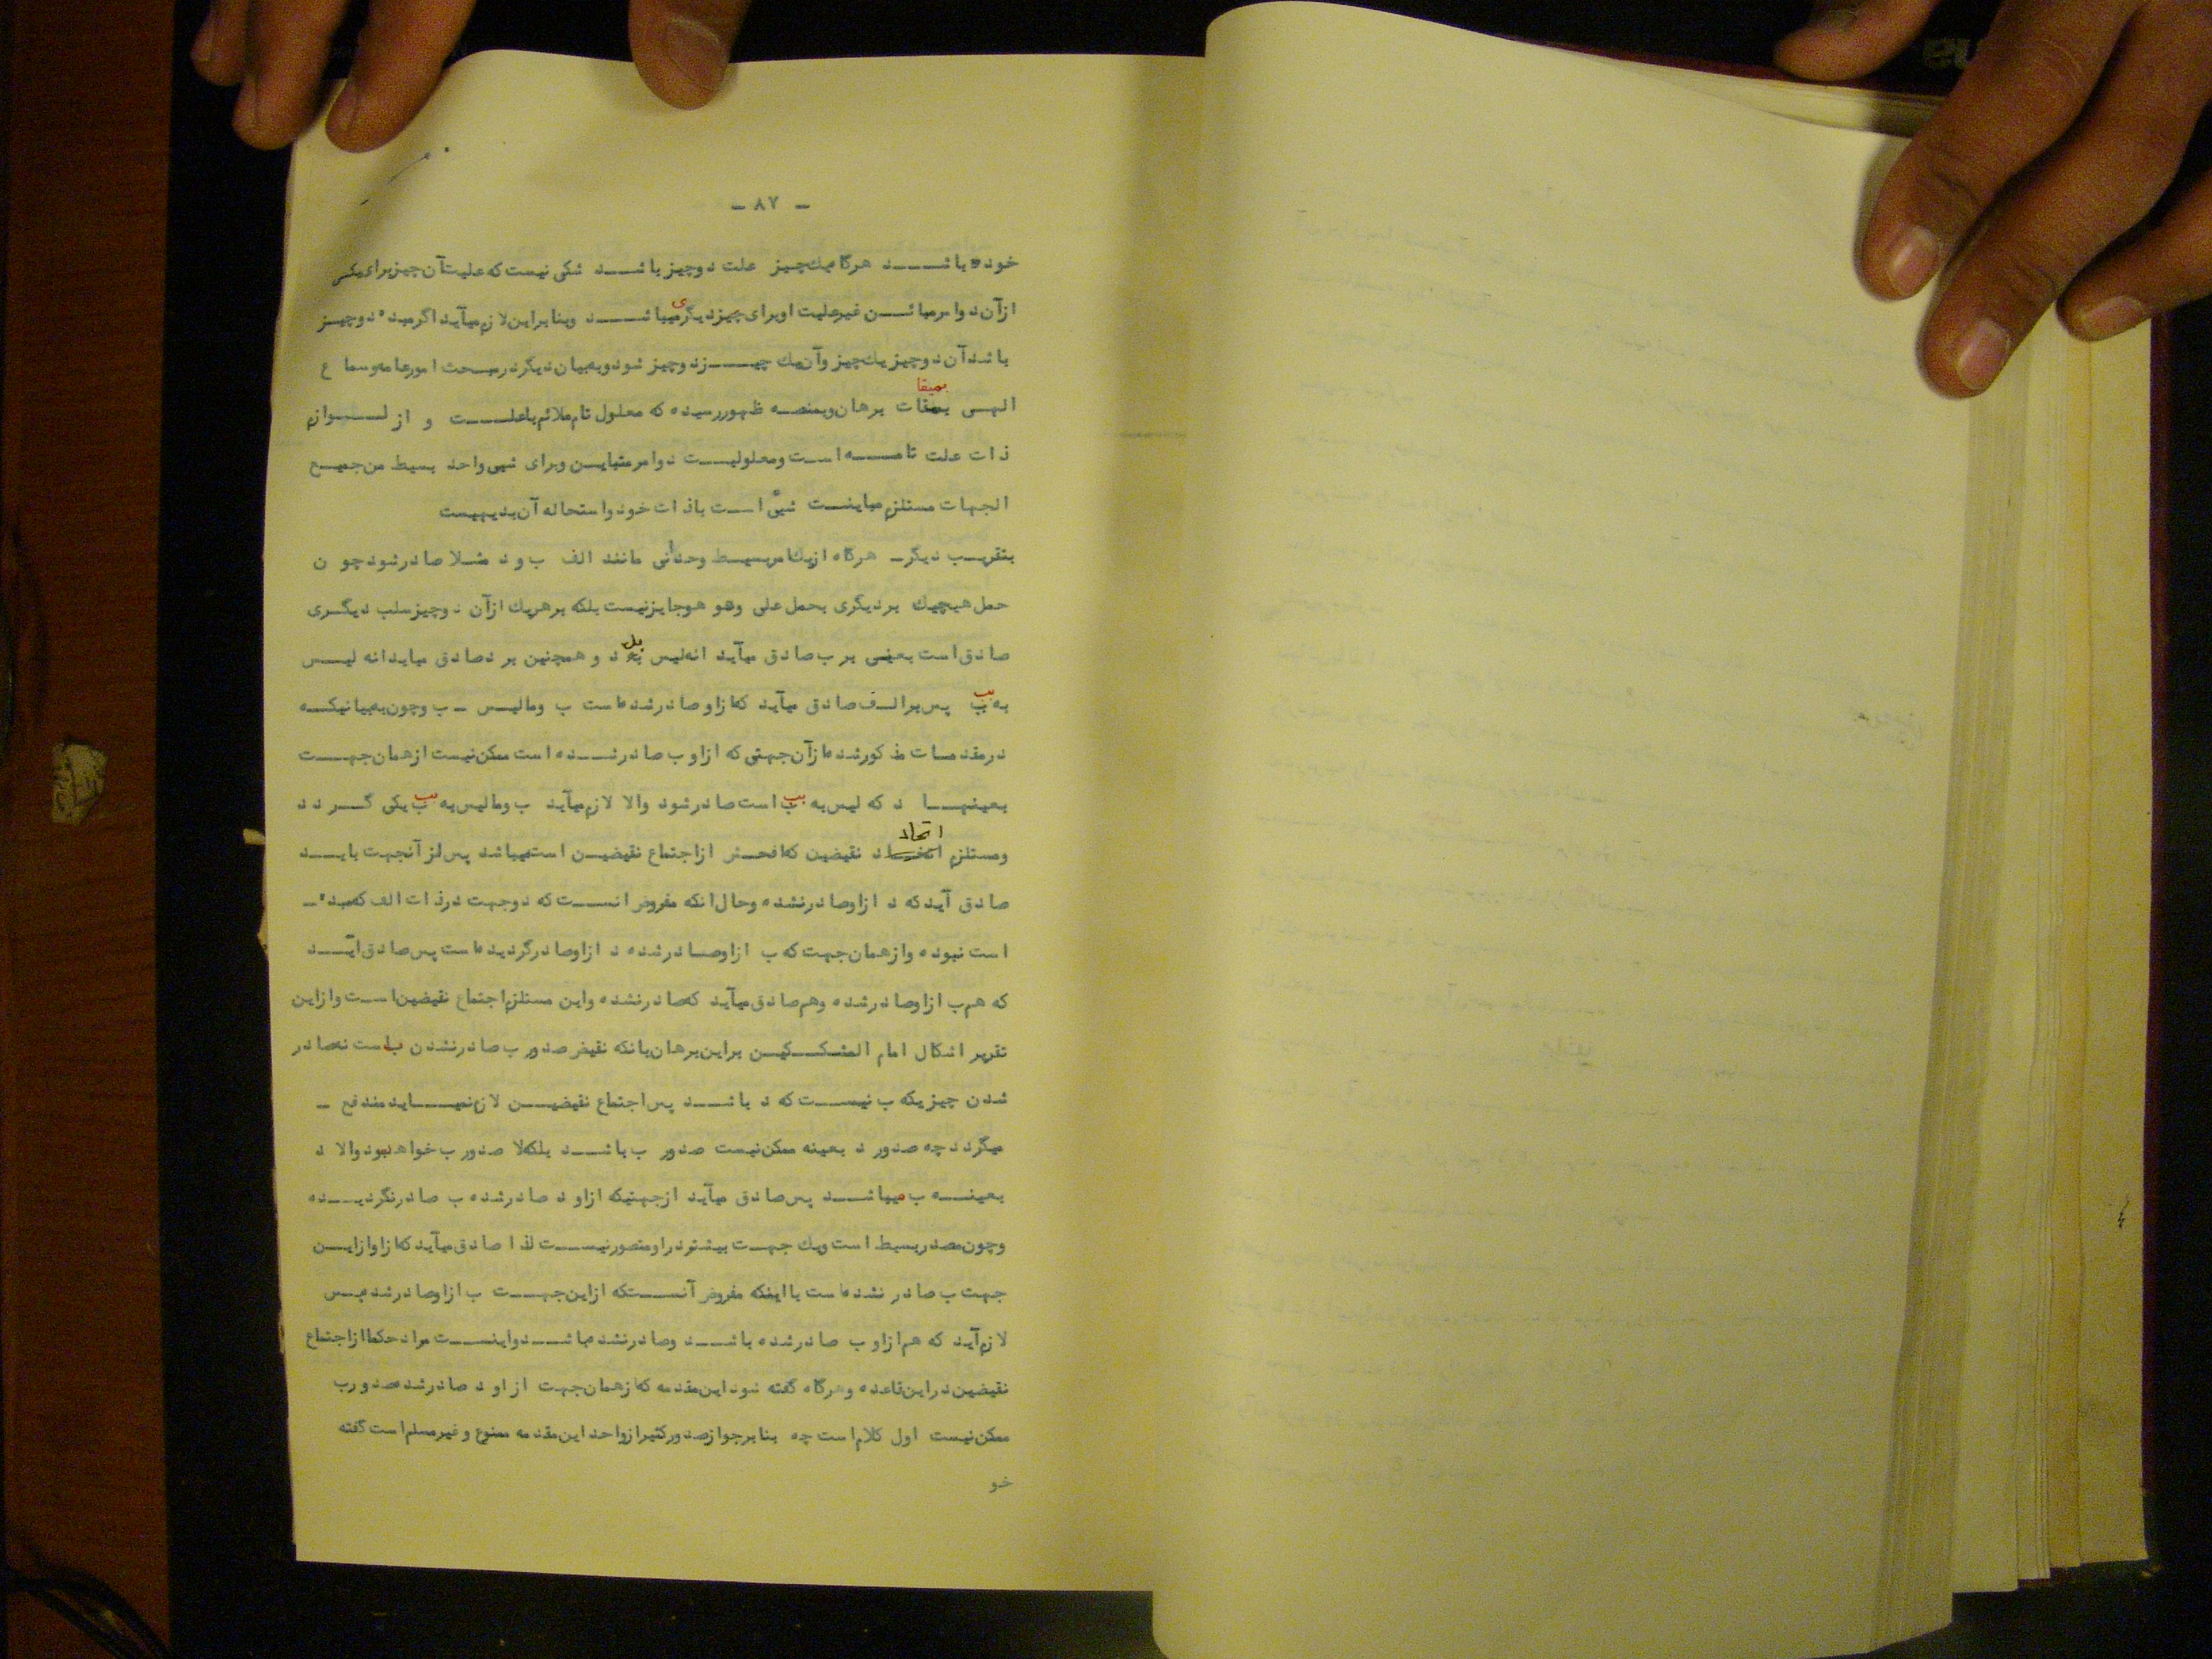 - ۸۷ -
خود باشد هرگاه یك چیز علت دو چیز باشد شکی نیست که علیت آن چیز برای یکی
از آن دو امر مباین غیر علیت او برای چیز دیگری میباشد و بنابراین لازم میآید اگر مبدء دو چیز
باشد آن دو چیز یك چیز و آن یك چیز دو چیز شود و به بیان دیگر در مبحث امور عامه و سماع
الهی بمیقات برهان و بمنصه ظهور رسیده که معلول تام ملائم با علت و از لوازم
ذات علت تامه است و معلولیت دو امر متباین و برای شیی واحد بسیط من جمیع
الجهات مستلزم مباینت شیئی است با ذات خود و استحاله آن بدیهیست
بتقریب دیگر - هرگاه از یك امر بسیط وحدانی مانند الف ب و د مثلا صادر شود چون
حمل هیچیك بر دیگری بحمل علی وهو هو جایز نیست بلکه بر هریك از آن دو چیز سلب دیگری
صادق است یعنی بر ب صادق میآید انه لیس بل د و همچنین بر د صادق میاید انه لیس
به بب پس بر الف صادق میآید که از او صادر شده است ب و مالیس - ب و چون به بیانیکه
در مقدمات مذکور شده از آن جهتی که از او ب صادر شده است ممکن نیست از همان جهت
بعینها د که لیس به بب است صادر شود والا لازم میآید ب و مالیس به بب یکی گردد
و مستلزم اتحاد نقیضین که افحش از اجتماع نقیضین است میباشد پس از آنجهت باید
صادق آید که د از او صادر نشده و حال انکه مفروض انست که دو جهت در ذات الف که مبدء -
است نبوده و از همان جهت که ب از او صادر شده د از او صادر گردیده است پس صادق آید
که هم ب از او صادر شده و هم صادق میآید که صادر نشده و این مستلزم اجتماع نقیضین است و از این
تقریر اشکال امام المشککین بر این برهان بانکه نقیض صدور ب صادر نشدن ب است نه صادر
شدن چیزیکه ب نیست که د باشد پس اجتماع نقیضین لازم نمیاید مندفع -
میگردد چه صدور د بعینه ممکن نیست صدور ب باشد بلکه لا صدور ب خواهد بود والا د
بعینه ب میباشد پس صادق میآید از جهتیکه از او د صادر شده ب صادر نگردیده
و چون مصدر بسیط است و یك جهت بیشتر در او متصور نیست لذا صادق میآید که از او از این
جهت ب صادر نشده است با اینکه مفروض آنستکه از این جهت ب از او صادر شده پس
لازم آید که هم از او ب صادر شده باشد و صادر نشده باشد و اینست مراد حکما از اجتماع
نقیضین در این قاعده و هرگاه گفته شود این مقدمه که از همان جهت از او د صادر شده صدور ب
ممکن نیست اول کلام است چه بنابر جواز صدور کثیر از واحد این مقدمه ممنوع و غیر مسلم است گفته
خو